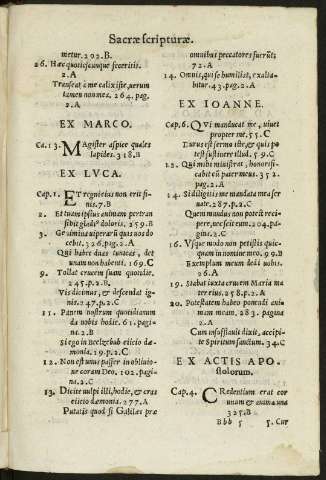 Sacræ scripturæ.
metur. 202. B.
26. Hæc quotiescunque feceritis.
2. A
Transeat à me calix iste, verum
tamen non mea. 264. pag.
2. A
EX MARCO.
Ca. 13. Magister aspice quales
lapides. 318. B
EX LVCA.
Cap. 1. Et regni eius non erit finis. 7. B
2. Et tuam ipsius animam pertransibit gladius doloris. 259. B
3. Genimina viperarū quis nos docebit. 326. pag. 2. A
Qui habet duas tunicas, det
vnam non habenti. 169. C
9. Tollat crucem suam quotidie.
245. p. 2. B.
Vis dicimus, et descendat ignis. 247. p. 2. C
11. Panem nostrum quotidianum
da nobis hodie. 61. pagina. 2. B
Si ego in Beelzebub eiicio dæmonia. 19. p. 2. C
12. Non est vnus passer in obliuione coram Deo. 102. pagina. 2. C
13. Dicite vulpi illi, hodie, & cras
eiicio dæmonia. 277. A
Putatis quod si Galilæi præ
omnibus peccatores fuerūt;
72. A
14. Omnis, qui se humiliat, exaltabitur. 43. pag. 2. A
EX IOANNE.
Cap. 6. Qui manducat me, viuet
propter me. 55. C
Durus est sermo iste, & quis potest sustinere illud. 59. C
12. Qui mihi ministrat, honorificabit eū pater meus. 352.
pag. 2. A
14. Si diligitis me mandata mea seruate. 287. p. 2. C
Quem mundus non potest recipere, nescit eum. 204. pagina. 2. C
16. Vsque modo non petistis quicquam in nomine meo. 99. B
Exemplum meum dedi vobis.
26. A
19. Stabat iuxta crucem Maria mater eius. 258. p. 2. A
20. Potestatem habeo ponendi animam meam. 283. pagina
2. A
Cum insufflauit dixit, accipite Spiritum sanctum. 34. C
EX ACTIS APOstolorum.
Cap. 4. Credentium erat cor
vnum & anima vna
325. B
Bbb 5 5. Cur